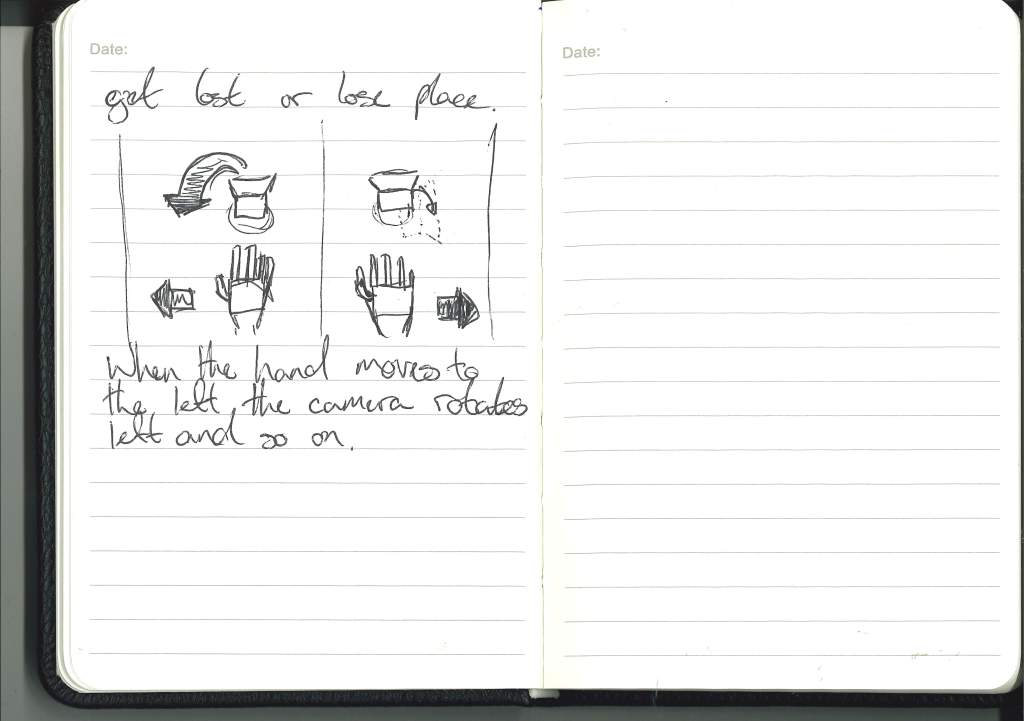 Date:
get lost or lose place.
When the hand moves to
the left, the camera rotates
left and so on.
Date: